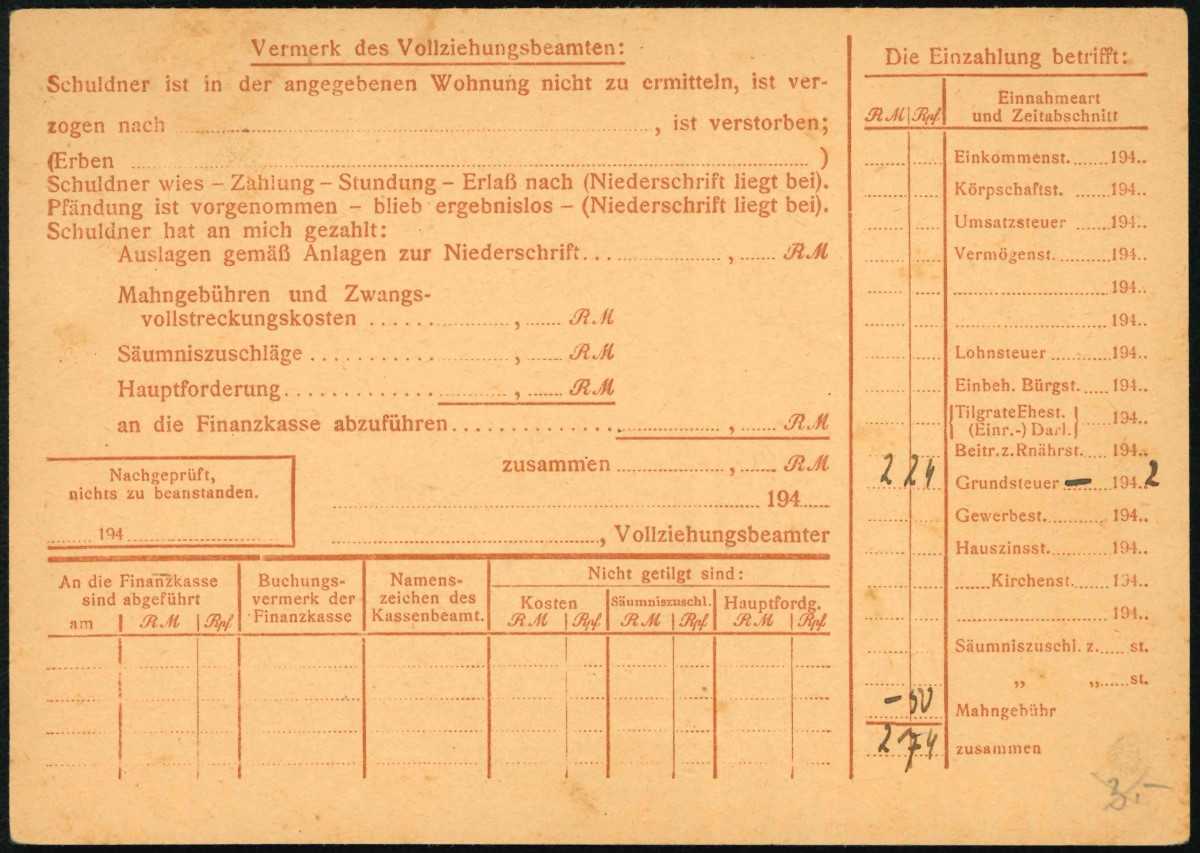 Vermerk des Vollziehungsbeamten:
Schuldner ist in der angegebenen Wohnung nicht zu ermitteln, ist ver-
zogen nach ........, ist verstorben;
(Erben ........)
Schuldner wies – Zahlung – Stundung – Erlaß nach (Niederschrift liegt bei).
Pfändung ist vorgenommen – blieb ergebnislos – (Niederschrift liegt bei).
Schuldner hat an mich gezahlt:
Auslagen gemäß Anlagen zur Niederschrift........, ...... RM
Mahngebühren und Zwangs-
vollstreckungskosten ........, ...... RM
Säumniszuschläge ........, ...... RM
Hauptforderung........, ...... RM
an die Finanzkasse abzuführen........, ...... RM
zusammen ........, ...... RM
........ 194......
........, Vollziehungsbeamter
Nachgeprüft,
nichts zu beanstanden.
...... 194 ........
An die Finanzkasse
sind abgeführt
am RM Rpf
Buchungs-
vermerk der
Finanzkasse
Namens-
zeichen des
Kassenbeamt.
Nicht getilgt sind:
Kosten Säumniszuschl. Hauptfordg.
RM Rpf RM Rpf RM Rpf
Die Einzahlung betrifft:
RM Rpf Einnahmeart
und Zeitabschnitt
Einkommenst. ...... 194..
Körpschaftst. ...... 194..
Umsatzsteuer ...... 194..
Vermögenst. ...... 194..
........ 194..
........ 194..
Lohnsteuer ...... 194..
Einbeh. Bürgst. ...... 194..
Tilgrate Ehest.
(Einr.-) Darl. ...... 194..
Beitr. z. Rnährst. ...... 194..
2 24 Grundsteuer — 194..2
Gewerbest. ...... 194..
Hauszinsst. ...... 194..
......Kirchenst. ...... 194..
........ 194..
Säumniszuschl. z. ...... st.
„ „ ...... st.
– 50 Mahngebühr
2 74 zusammen
3.–